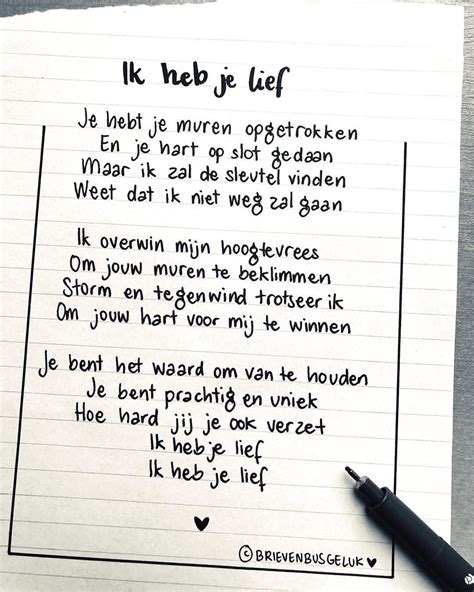 Ik heb je lief
Je hebt je muren opgetrokken
En je hart op slot gedaan
Maar ik zal de sleutel vinden
Weet dat ik niet weg zal gaan
Ik overwin mijn hoogtevrees
Om jouw muren te beklimmen
Storm en tegenwind trotseer ik
Om jouw hart voor mij te winnen
Je bent het waard om van te houden
Je bent prachtig en uniek
Hoe hard jij je ook verzet
Ik heb je lief
Ik heb je lief
© BRIEVENBUSGELUK